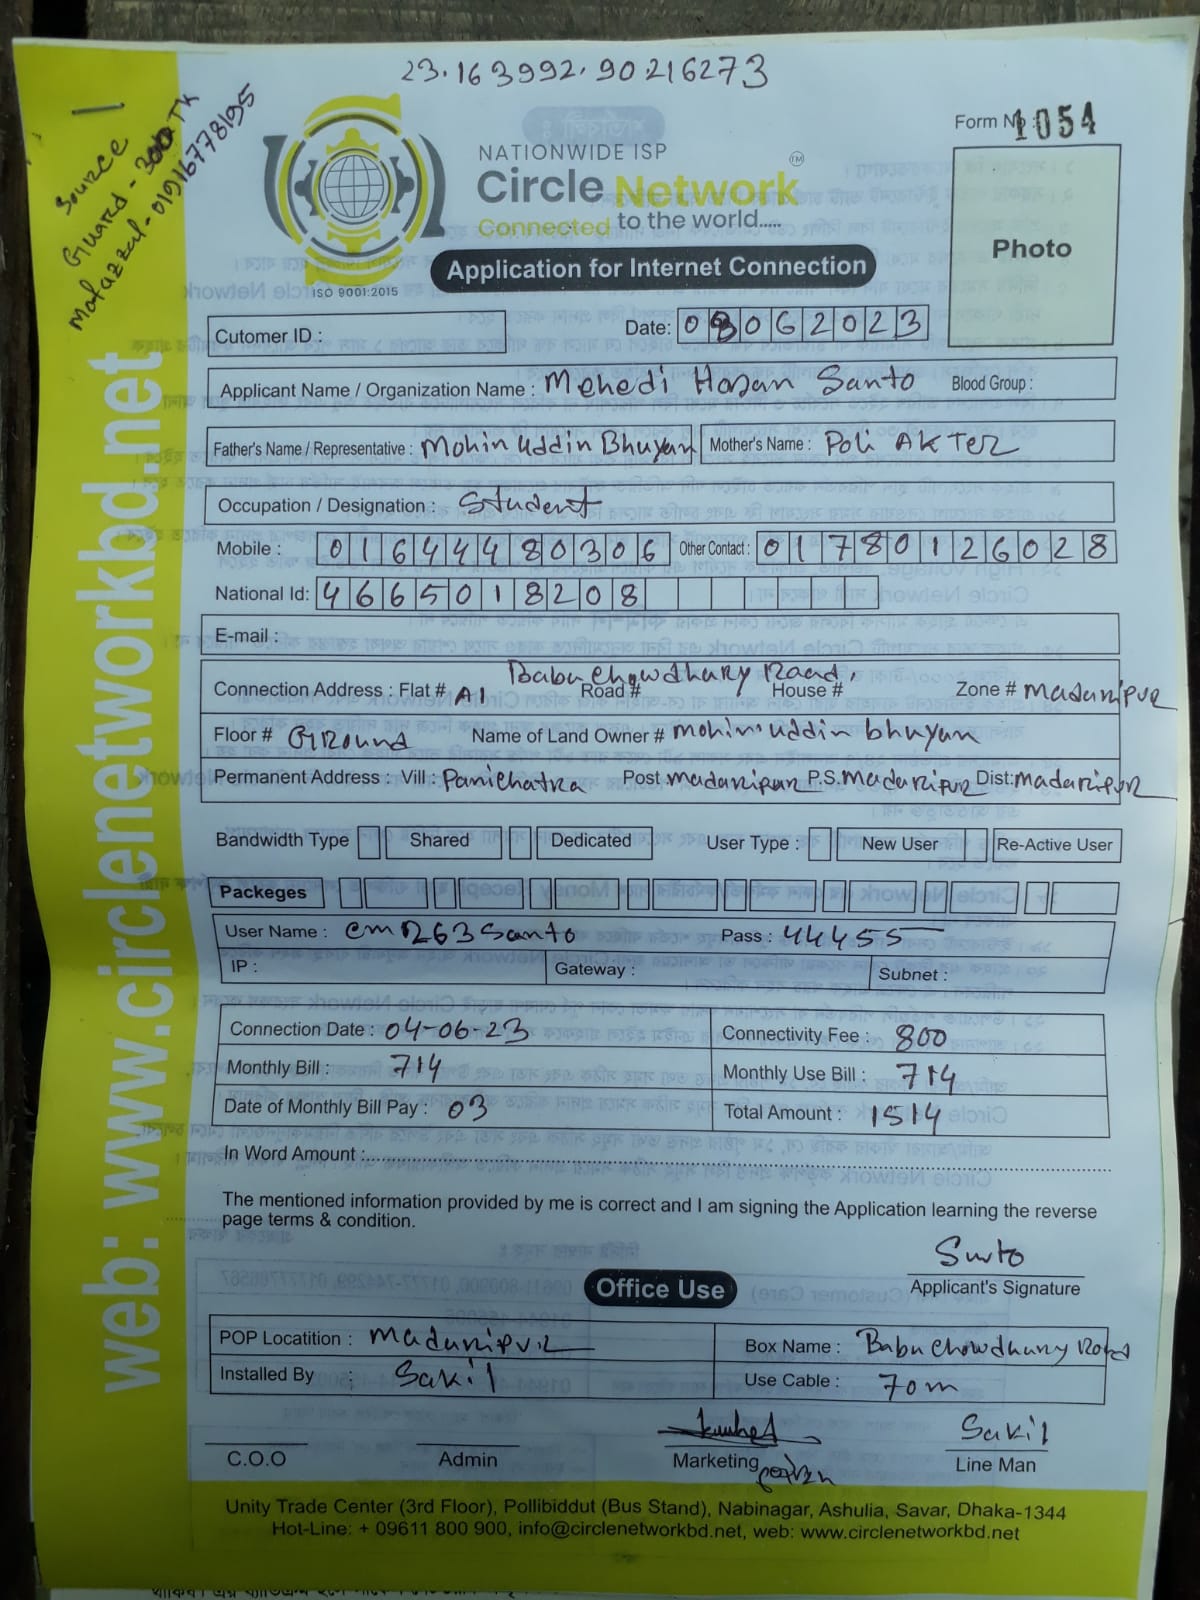 23.163992.90216273
Source
Guard - 300 TK
Mofazzal-01916778195
Form No: 1054
NATIONWIDE ISP
Circle Network TM
Connected to the world.....
ISO 9001:2015
Application for Internet Connection
Photo
Cutomer ID :
Date: 03062023
Applicant Name / Organization Name : Mehedi Hasan Santo Blood Group :
Father's Name / Representative : Mohin Uddin Bhuyan Mother's Name : Poli AKTER
Occupation / Designation : Student
Mobile : 01644480306 Other Contact : 01780126028
National Id: 4665018208
E-mail :
Connection Address : Flat # A1 Road # Babu Chowdhury Road, House # Zone # Madaripur
Floor # Ground Name of Land Owner # Mohin uddin bhuyan
Permanent Address : Vill : Panichatra Post Madaripur P.S. Madaripur Dist: Madaripur
Bandwidth Type Shared Dedicated User Type : New User Re-Active User
Packeges
User Name : cmr263santo Pass : 44455
IP : Gateway : Subnet :
Connection Date : 04-06-23 Connectivity Fee : 800
Monthly Bill : 714 Monthly Use Bill : 714
Date of Monthly Bill Pay : 03 Total Amount : 1514
In Word Amount :
The mentioned information provided by me is correct and I am signing the Application learning the reverse
page terms & condition.
Santo
Applicant's Signature
Office Use
POP Locatition : Madaripur Box Name : Babu Chowdhury Road
Installed By : Sakil Use Cable : 70m
Sakil
C.O.O Admin Marketing Line Man
Unity Trade Center (3rd Floor), Pollibiddut (Bus Stand), Nabinagar, Ashulia, Savar, Dhaka-1344
Hot-Line: + 09611 800 900, info@circlenetworkbd.net, web: www.circlenetworkbd.net
web: www.circlenetworkbd.net